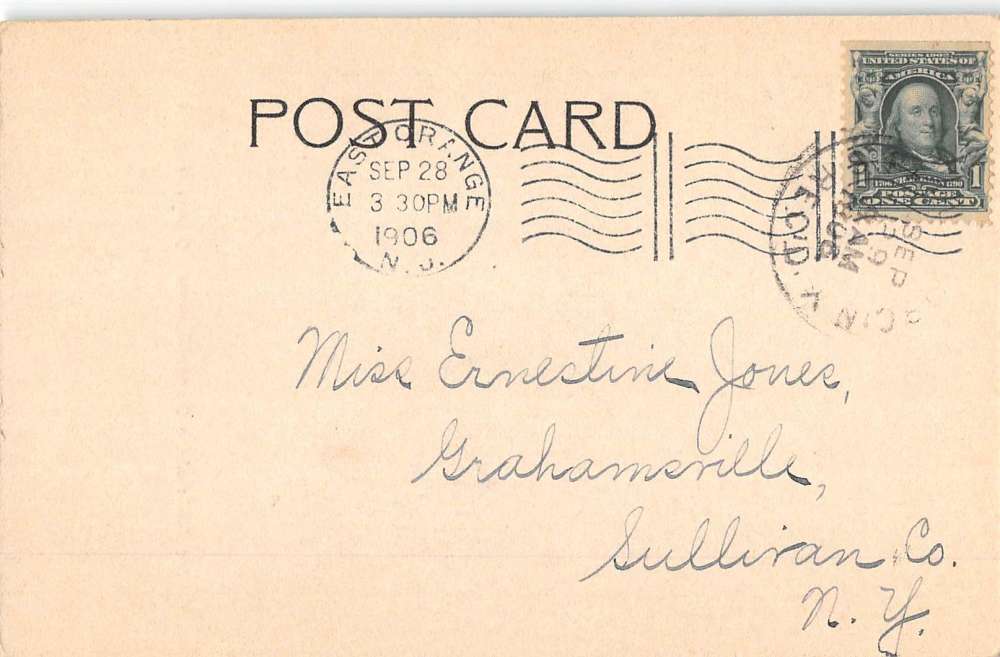 POST CARD
EAST ORANGE
SEP 28
3 30PM
1906
N. J.
SERIES 1902
UNITED STATES OF
AMERICA
1 FRANKLIN 1
1706 1790
POSTAGE
ONE CENT
SEP
AM
06
REC'D.
Miss Ernestine Jones,
Grahamsville,
Sullivan Co.
N. Y.